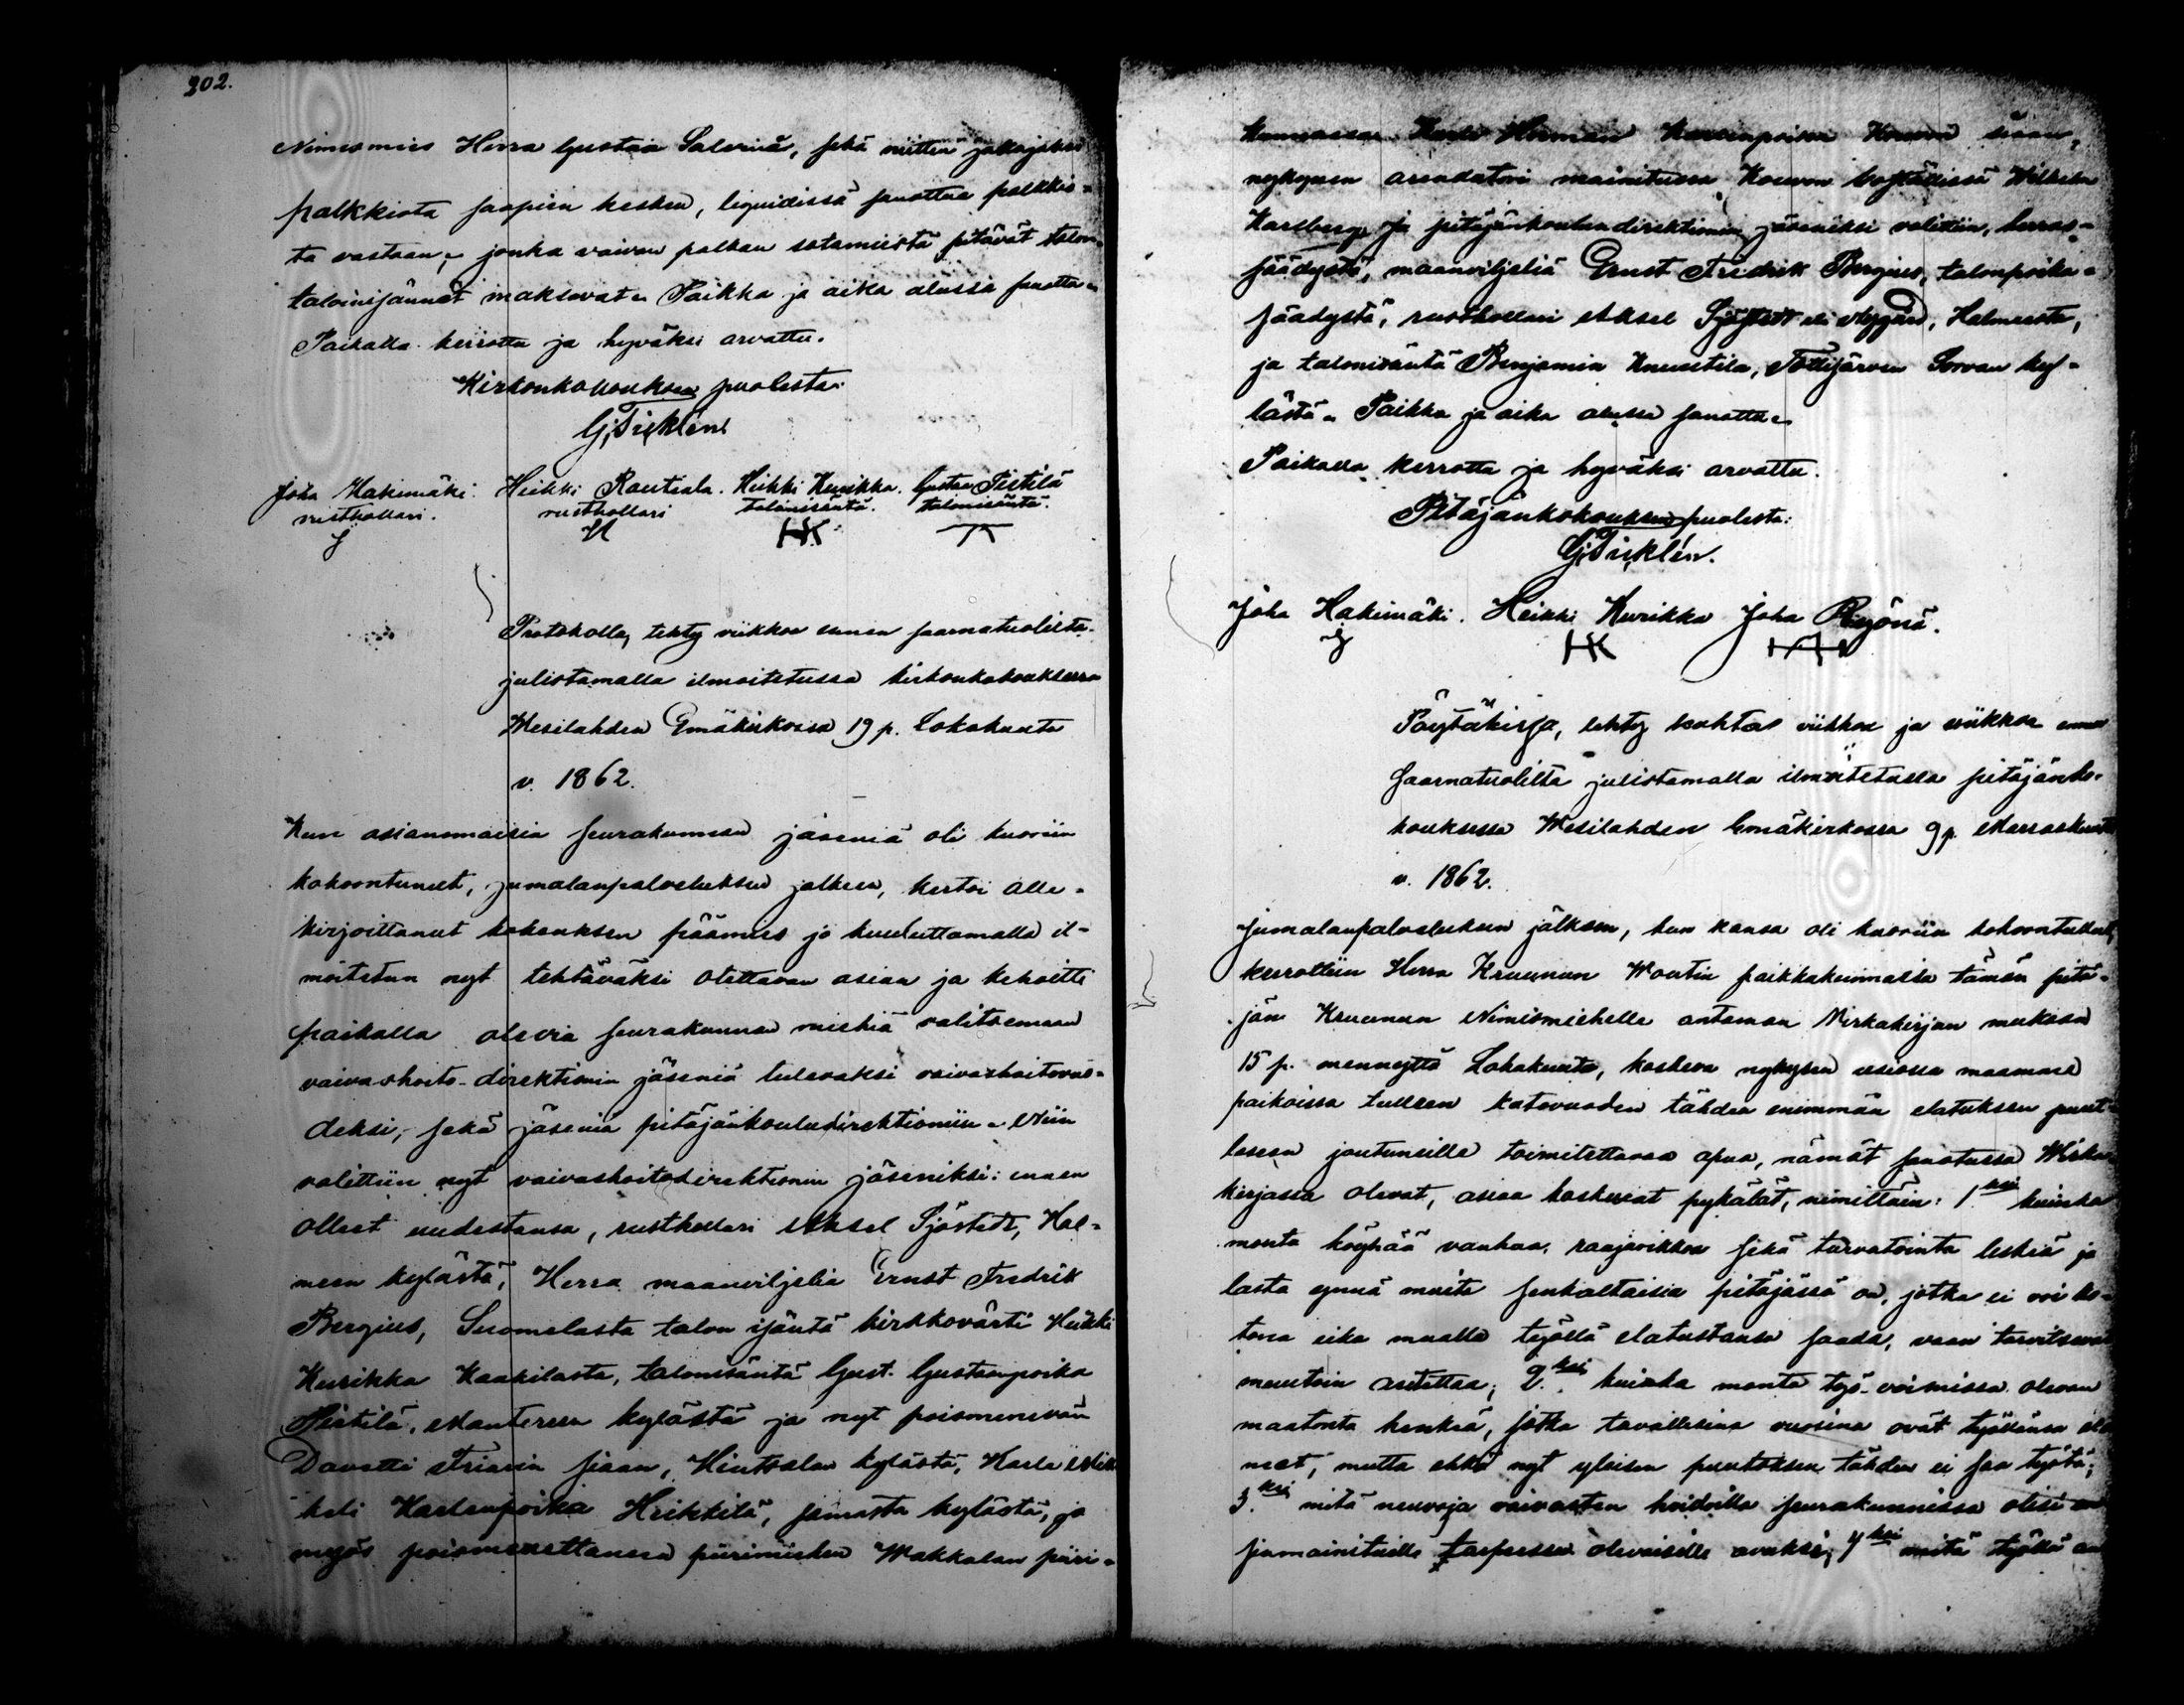 202.
Nimismies Herra Gustaa Salenid, sekä niitten jakajaksi
palkkiota saapien kesken, liquidissä sanottua palkkio-
ta vastaan, jonka vaivan palkan sotamiestä pitävät talon
taloinisännät maksavat. Paikka ja aika alussa sanottu.
Paikalla kerrottu ja hyväksi arvattu.
Kirkonkokouksen puolesta:
G. Ticklén.
Joha Hakimäki. Heikki Rautiala. Heikki Kurikka. Gustaa Pistilä
rusthollari. rusthollari talonisäntä. talonisäntä.
HK
Protokolla, tehty viikkoa ennen saarnatuolilta
julistamalla ilmoitetussa kirkonkokouksessa
Wesilahden Emäkirkossa 19 p. Lokakuuta
v. 1862.
Kun asianomaisia seurakunnan jäseniä oli kuoriin
kokoontuneet, jumalanpalveluksen jälkeen, kertoi alle-
kirjoittanut kokouksen päämies jo kuuluttamalla il-
moitetun nyt tehtäväksi otettavan asian ja kehoitti
paikalla olevia seurakunnan miehiä valitsemaan
vaivashoito-direktionin jäseniä tulevaksi vaivashoitovuo-
deksi, sekä jäseniä pitäjänkouludirektioniin. Niin
valittiin nyt vaivashoitodirektionin jäseniksi: ennen
olleet uudestansa, rusthollari Aksel Sjöstedt, Hal-
meen kylästä, Herra maanviljeliä Ernst Fredrik
Bergius, Suomelasta talon isäntä kirkkovärti Heikki
Kurikka Kaakilasta, talonisäntä Gust. Gustaanpoika
Pistilä, Mantereen kylästä ja nyt poismenevän
Davetti Friarin siaan, Hintsalan kylästä, Karla Mik
keli Karlenpoika Heikkilä, samasta kylästä, ja
myös poismuuttaneen piirimiehen Wakkalan piiri-
kunnassa Karle Herman Karlenpoika Kouvon siaan,
nykynen arendatori mainitussa Kouvon bostädissä Wilhelm
Karlberg. Ja pitäjänkoulun direktionin jäseniksi valittiin, herras-
säädystä, maanviljeliä Ernst Fredrik Bergius, talonpoika-
säädystä, rusthollari Aksel Sjöstedt eli Nygård, Halmeesta,
ja talonisäntä Benjamin Knuutila, Tottijärven Sorvan kyl-
lästä. Paikka ja aika alussa sanottu.
Paikalla kerrottu ja hyväksi arvattu.
Pitäjänkokouksen puolesta:
G. Ticklén.
Joha Hakimäki. Heikki Kurikka Joha Pijönä.
HK
Pöytäkirja, tehty kahta viikkoa ja viikkoa ennen
saarnatuolilta julistamalla ilmoitetussa pitäjänko-
kouksessa Wesilahden Emäkirkossa 9 p. Marraskuuta
v. 1862.
Jumalanpalveluksen jälkeen, kun kansa oli kuoriin kokoontunut,
kerrottiin Herra Kruunun Woutin paikkakunnassa tämän pitä-
jän Kruunun Nimismiehelle antaman Virkakirjan mukaan
15 p. mennyttä Lokakuuta, koskeva nykysen useissa maamme
paikoissa tulleen katovuoden tähden enimmän elatuksen puut-
teseen joutuneille toimitettavaa apua, nämät sanotussa Wirka-
kirjassa olevat, asiaa koskevat pykälät, nimittäin: 1.ksi kuinka
monta köyhää vanhaa, raajarikkoa sekä turvatointa leskeä ja
lasta ynnä muita senkaltaisia pitäjässä on, jotka ei voi ko-
tona eikä muualla työllä elatustansa saada, vaan tarvitsevat
muutoin autettaa; 2.ksi kuinka monta työ-voimissa olevan
maatonta henkeä, jotka tavallisina vuosina ovat työllänsä elä
neet, mutta ehkä nyt yleisen puutoksen tähden ei saa työtä;
3.ksi mitä neuvoja vaivasten hoidoilla seurakunnissa olisi
siamainituille tarpeessa olevaisille avuksi; 4ksi mitä työllä